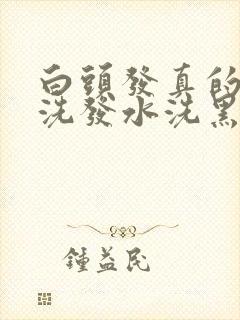 白頭發真的
洗發水洗黑
鍾益民